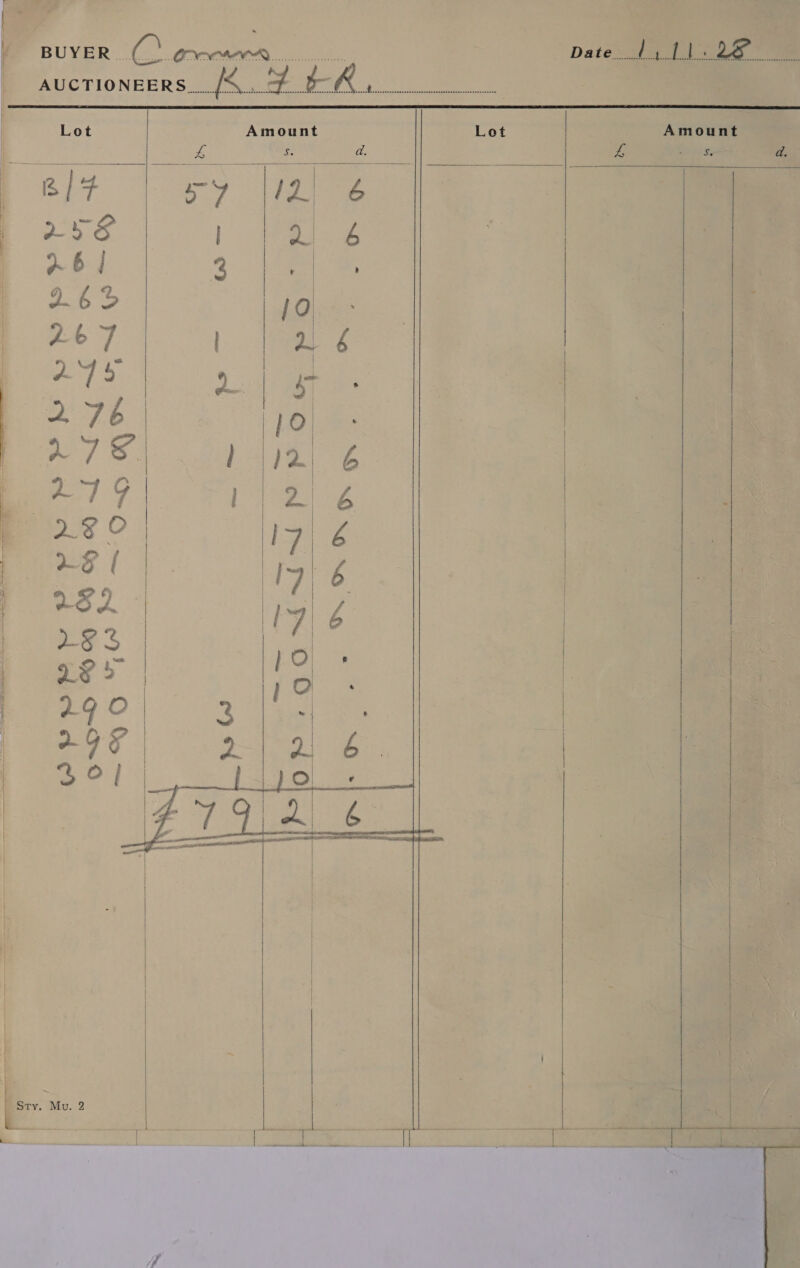 BUYER
Date 1.11.28
AUCTIONEERS K. F & R.
Lot Amount Lot Amount
£ s. d. £ s. d.
B/F 57 12 6
258 1 2 6
261 3 . .
263 10 .
267 1 2 6
275 2 5 .
276 10 .
278 1 12 6
279 1 2 6
280 17 6
281 17 6
282 17 6
283 10 .
285 10 .
290 3 . .
298 2 2 6
301 1 10 .
£79 2 6
Sty. Mu. 2